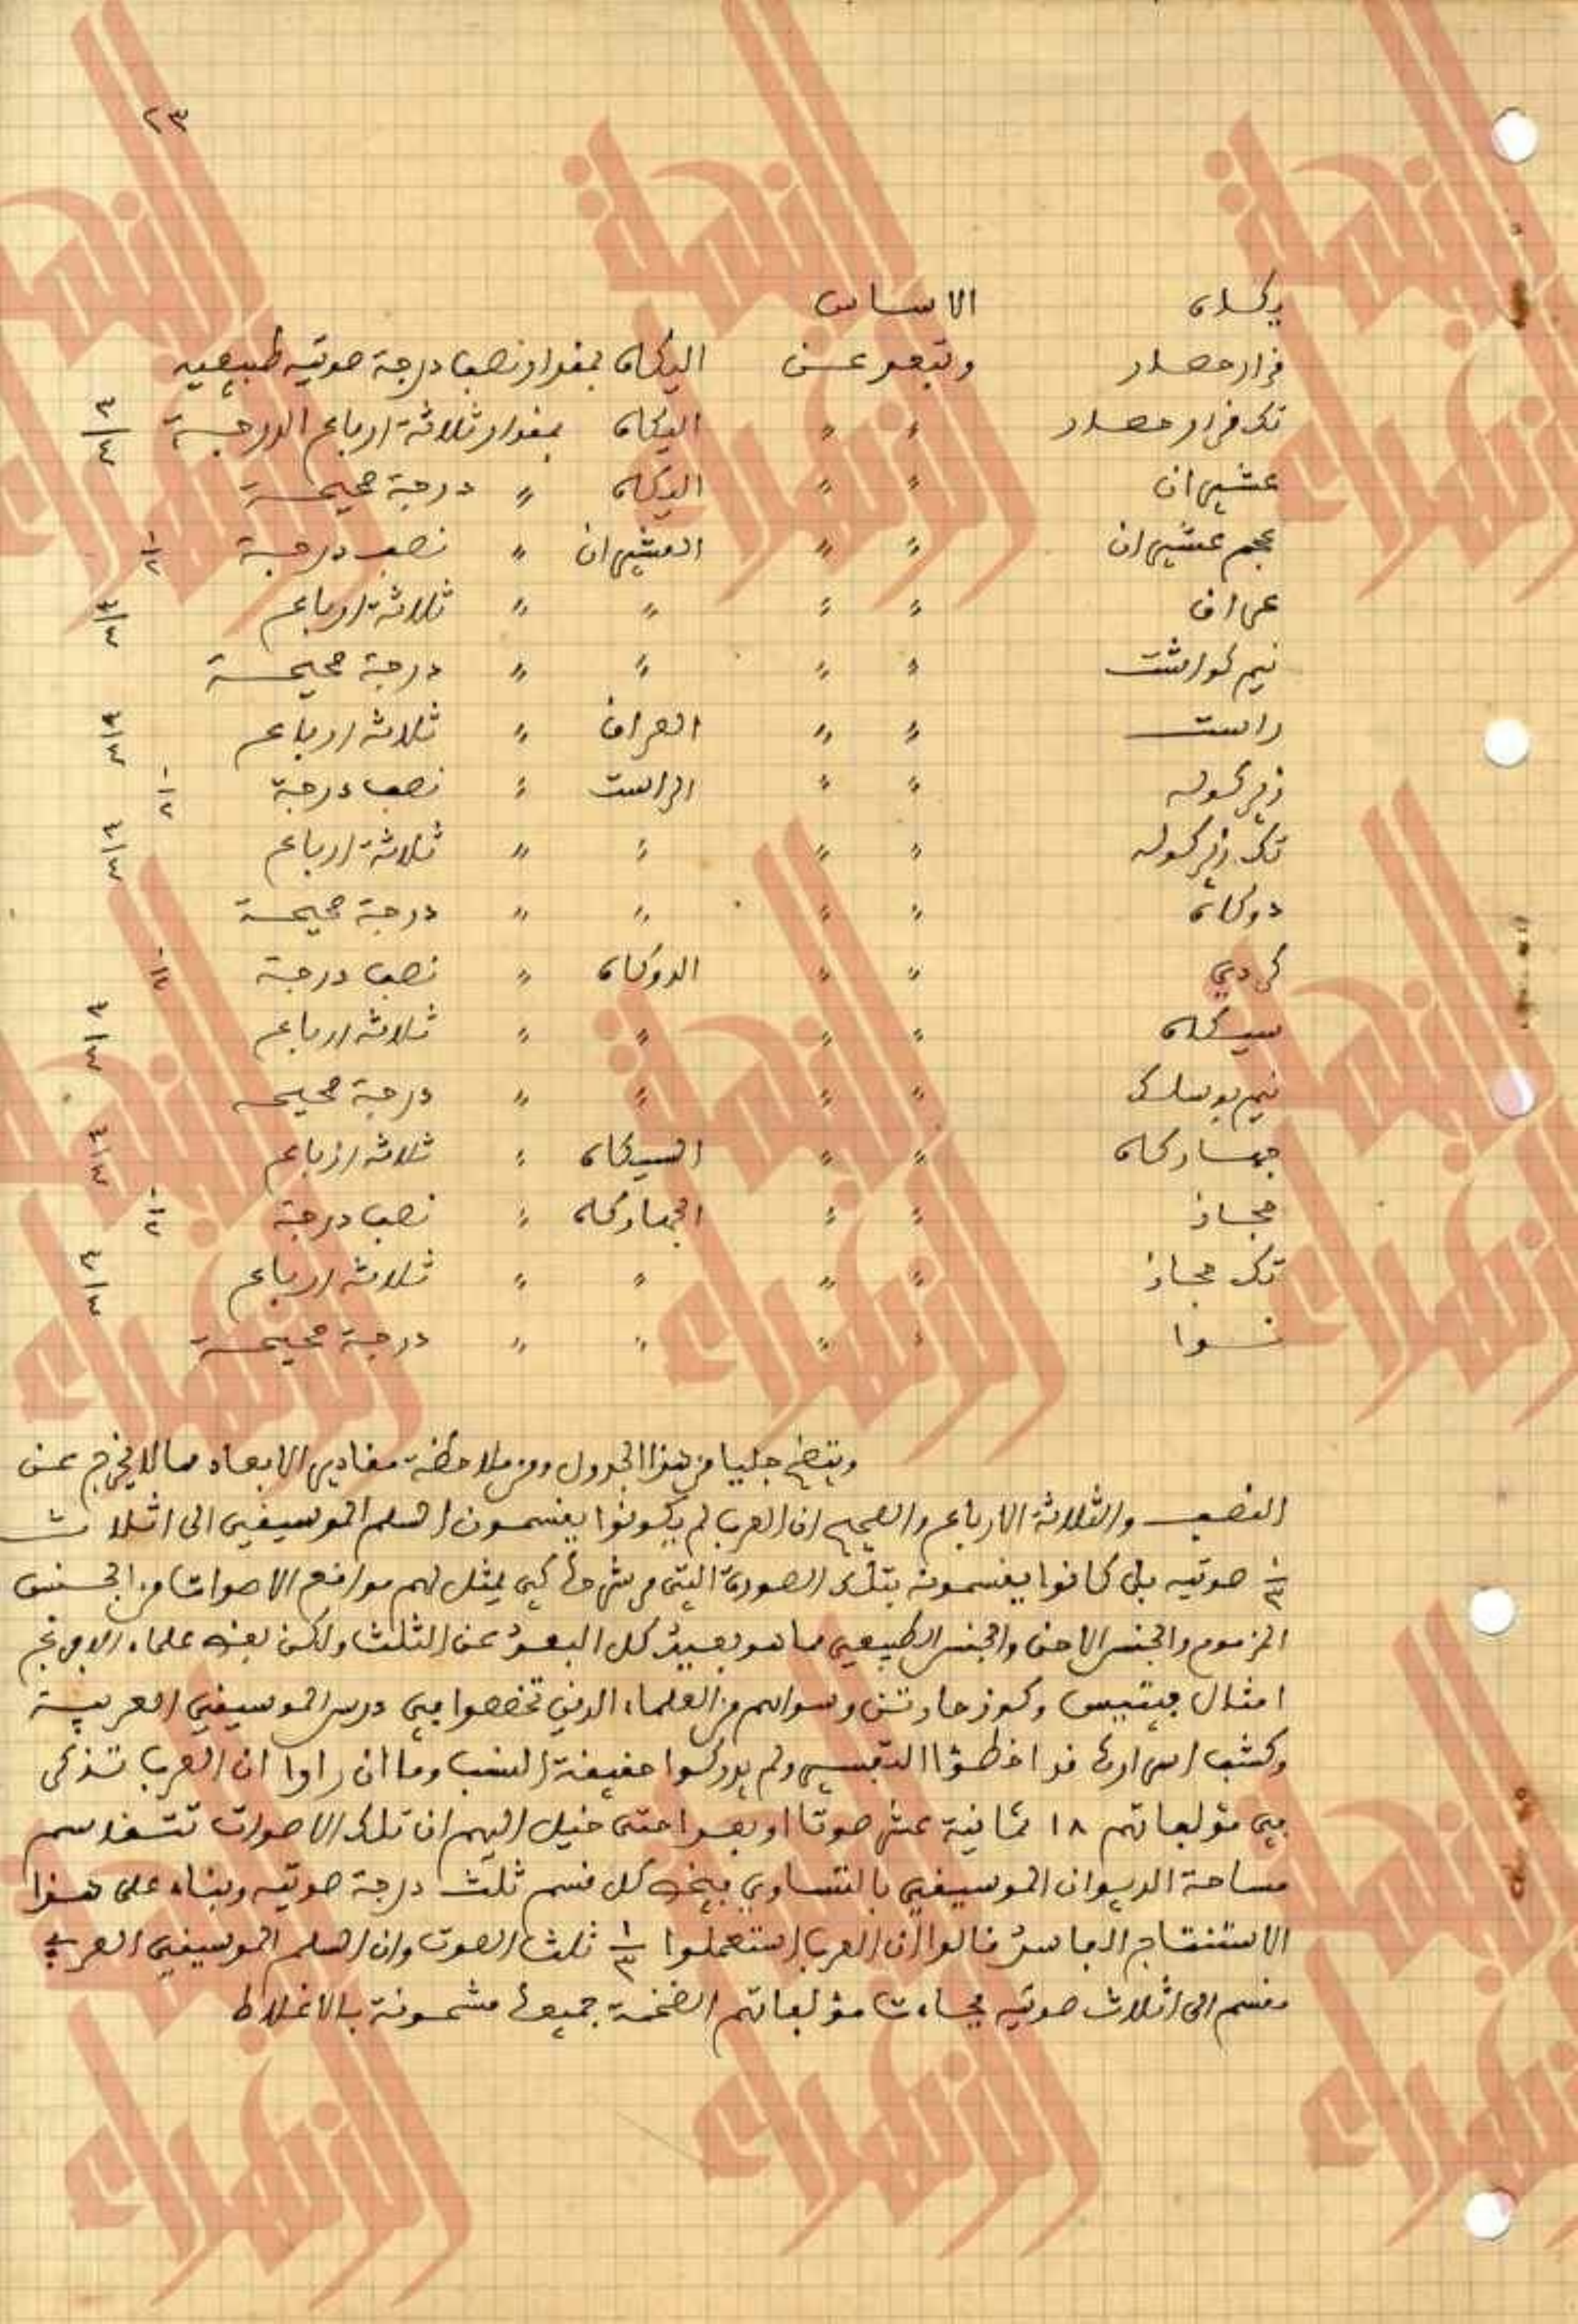 ٢٣
يكاه الاساس
قرار حصار وتبعد عن اليكاه بمقدار نصف درجة صوتيه طبيعيه
تك قرار حصار " " اليكاه بمقدار ثلاثة ارباع الدرجة ٣/٤
عشيران " " اليكاه " درجة صحيحة
عجم عشيران " " العشيران " نصف درجة ١/٢
عراق " " " " ثلاثة ارباع ٣/٤
نيم كواشت " " " " درجة صحيحة
راست " " العراق " ثلاثة ارباع ٣/٤
زيركوله " " الراست " نصف درجة ١/٢
تك زيركوله " " " " ثلاثة ارباع ٣/٤
دوكاه " " " " درجة صحيحة
كردي " " الدوكاه " نصف درجة ١/٢
سيكاه " " " " ثلاثة ارباع ٣/٤
نيم بوسلك " " " " درجة صحيحه
جهاركاه " " السيكاه " ثلاثة ارباع ٣/٤
حجاز " " الجهاركاه " نصف درجة ١/٢
تك حجاز " " " " ثلاثة ارباع ٣/٤
نوا " " " " درجة صحيحة
ويتضح جليا من هذا الجدول ومن ملاحظة مقادير الابعاد مما لا يخرج عن
النصف والثلاثة الارباع والصحيح ان العرب لم يكونوا يقسمون السلم الموسيقي الى اثلاث
١/٣ صوتيه بل كانوا يقسمونه بتلك الصورة التي مر شرحها كي يمثل لهم مواقع الاصوات من الجنس
المزموم والجنس الارخى والجنس الطبيعي مما هو بعيد كل البعد عن الثلث ولكن بعض علماء الافرنج
امثال فيتيس وكوزجارتن وسواهم من العلماء الذين تخصصوا في درس الموسيقى العربية
وكشف اسرارها قد اخطؤا التقسيم ولم يدركوا حقيقة النسب وما ان راوا ان العرب تذكر
في مؤلفاتهم ١٨ ثمانية عشر صوتا او بعدا حتى خيل اليهم ان تلك الاصوات تتقاسم
مساحة الديوان الموسيقي بالتساوي فيخص كل قسم ثلث درجة صوتيه وبناء على هذا
الاستنتاج الفاسد قالوا ان العرب استعملوا ١/٣ ثلث الصوت وان السلم الموسيقي العربي
مقسم الى اثلاث صوتيه فجاءت مؤلفاتهم الضخمة جميعها مشحونة بالاغلاط